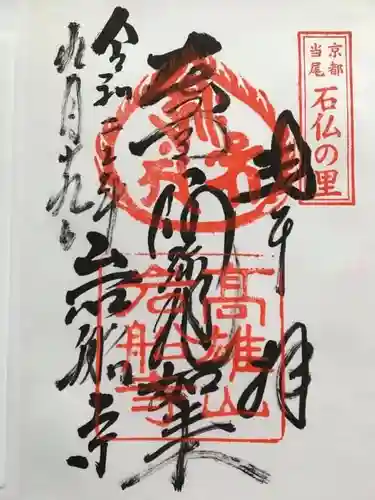 京都
当尾
石仏の里
奉拝
阿弥陀如来
高雄山
岩船寺
令和
九月十九日
岩船寺